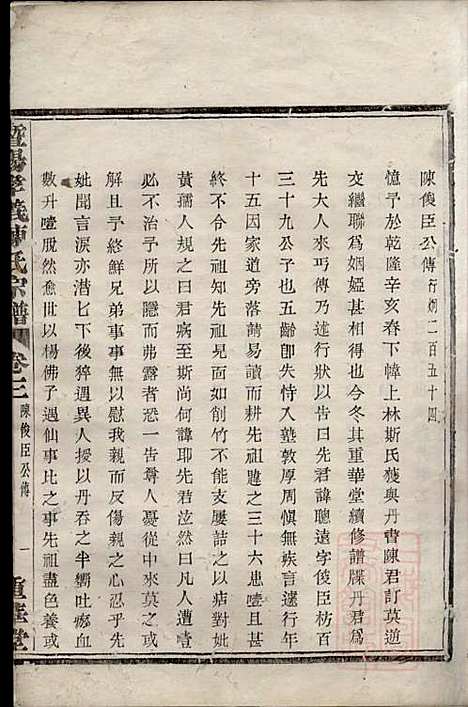 陳俊臣公傳行炯二百五十四
憶予於乾隆辛亥春下幃上林斯氏獲與丹書陳君訂莫逆
交繼聯為姻婭甚相得也今其重華堂續修譜牒丹君為
先大人來丐傳予諾之按先君諱聰遠字俊臣枋百
三十九公子也五齡卽失恃入塾敦厚周愼無疾言遽行年
十五因家道旁落薾易讀而耕先祖韙之三十六患噎且甚
終不令先祖知先祖見面如削竹不能支屢詰之以痁對妣
黃孺人規之曰君病至斯尚何諱耶先君泫然曰凡人遭噎
必不治予所以隱而弗露者恐一告尊人憂從中來莫之或
解且予終鮮兄弟事事無以慰我親而反傷親之心忍乎先
妣聞言淚亦潸七下後猝遇異人授以丹吞之半嚮吐瘀血
數升噎脫然愈世以楊佛子遇仙事比之事先祖盡色養或
暨陽孝義陳氏宗譜
卷三
陳俊臣公傳
一
重華堂